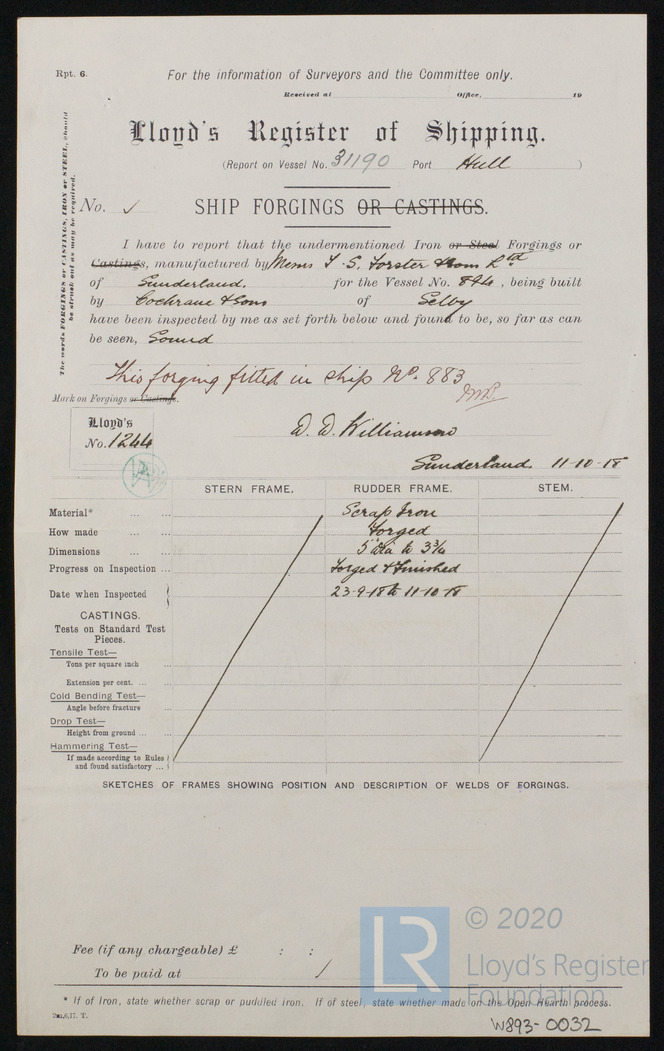 Rpt. 6.
For the information of Surveyors and the Committee only.
Received at Office, 19
Lloyd's Register of Shipping.
(Report on Vessel No. 31190 Port Hull )
The words FORGINGS or CASTINGS, IRON or STEEL, should be struck out as may be required.
No. ✓ SHIP FORGINGS OR CASTINGS.
I have to report that the undermentioned Iron or Steel Forgings or
Castings, manufactured by Messrs T. S. Forster & Sons Ltd
of Sunderland. for the Vessel No. 894, being built
by Cochrane & Sons of Selby
have been inspected by me as set forth below and found to be, so far as can
be seen, Sound
This forging fitted in ship No. 883
Mark on Forgings or Castings.
Lloyd's
No. 1244
D. D. Williamson
Sunderland. 11-10-18
STERN FRAME. RUDDER FRAME. STEM.
Material* ... ... Scrap Iron
How made ... ... Forged
Dimensions ... ... 5" dia to 3 3/4
Progress on Inspection ... Forged & Finished
Date when Inspected 23-9-18 to 11-10-18
CASTINGS.
Tests on Standard Test
Pieces.
Tensile Test—
Tons per square inch ...
Extension per cent. ... ...
Cold Bending Test—
Angle before fracture ...
Drop Test—
Height from ground ... ...
Hammering Test—
If made according to Rules
and found satisfactory ...
SKETCHES OF FRAMES SHOWING POSITION AND DESCRIPTION OF WELDS OF FORGINGS.
Fee (if any chargeable) £ : :
To be paid at /
LR
© 2020
Lloyd's Register
Foundation
* If of Iron, state whether scrap or puddled iron. If of steel, state whether made on the Open Hearth process.
W893-0032